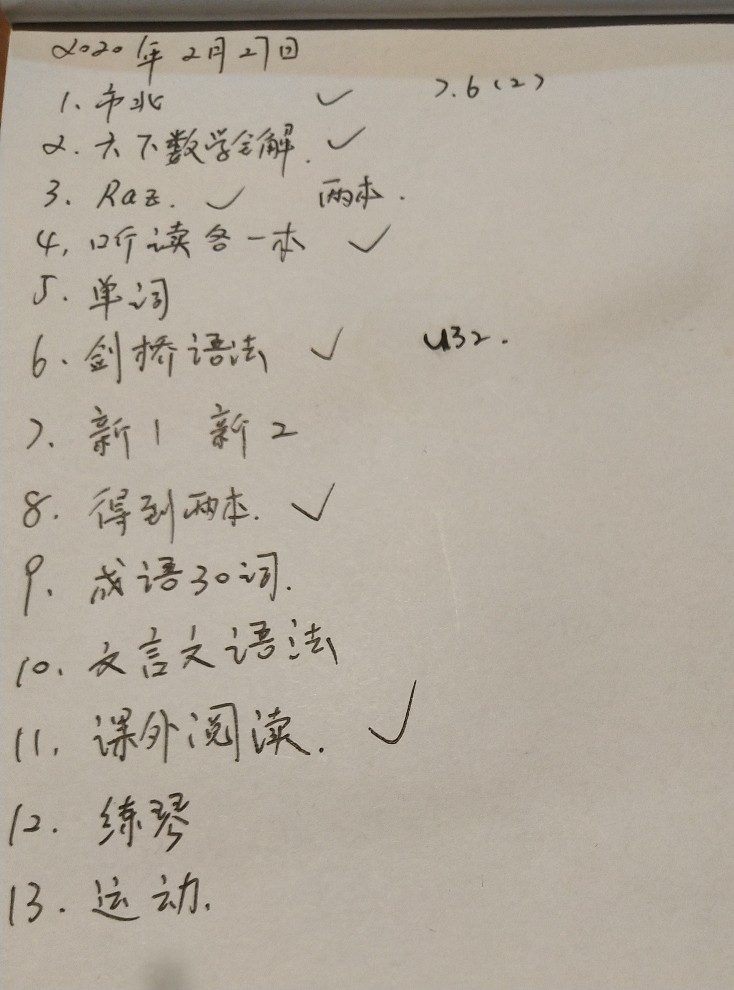 2020年2月27日
1. 市北 ✓ 7.6(2)
2. 六下数学全解. ✓
3. Raz. ✓ 两本.
4, 听读各一本 ✓
5. 单词
6. 剑桥语法 ✓ U32.
7. 新1 新2
8. 得到两本. ✓
9. 成语30词.
10. 文言文语法
11. 课外阅读. ✓
12. 练琴
13. 运动.